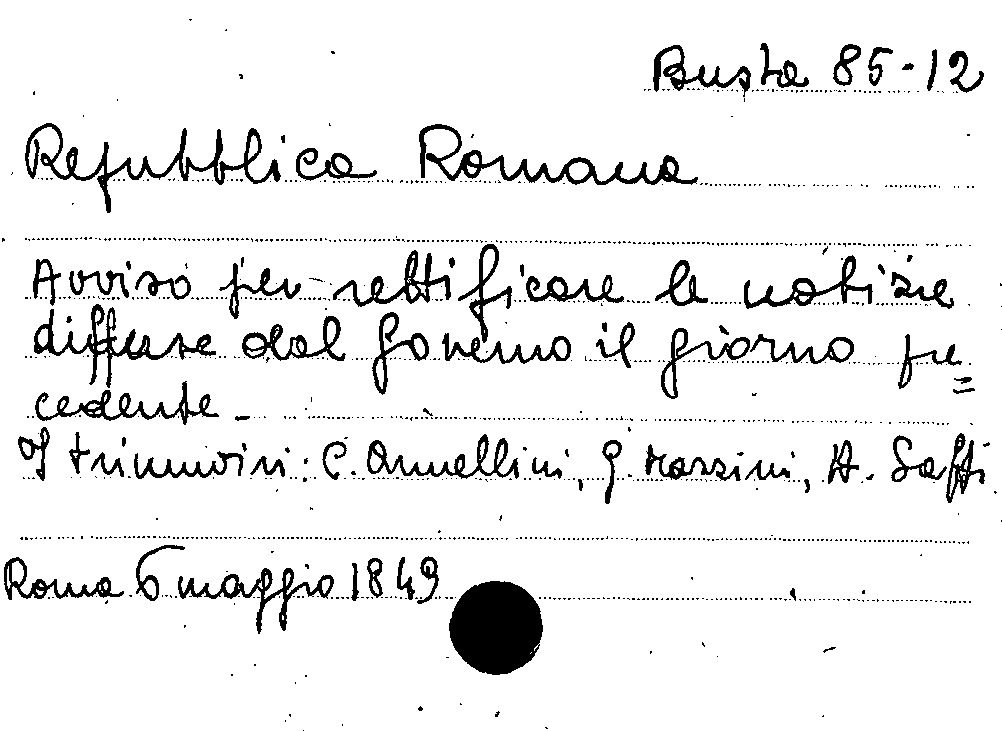 Busta 85-12
Repubblica Romana
Avviso per rettificare le notizie
diffuse dal Governo il giorno pre=
cedente -
I triumviri: C. Armellini, G. Mazzini, A. Saffi
Roma 6 maggio 1849